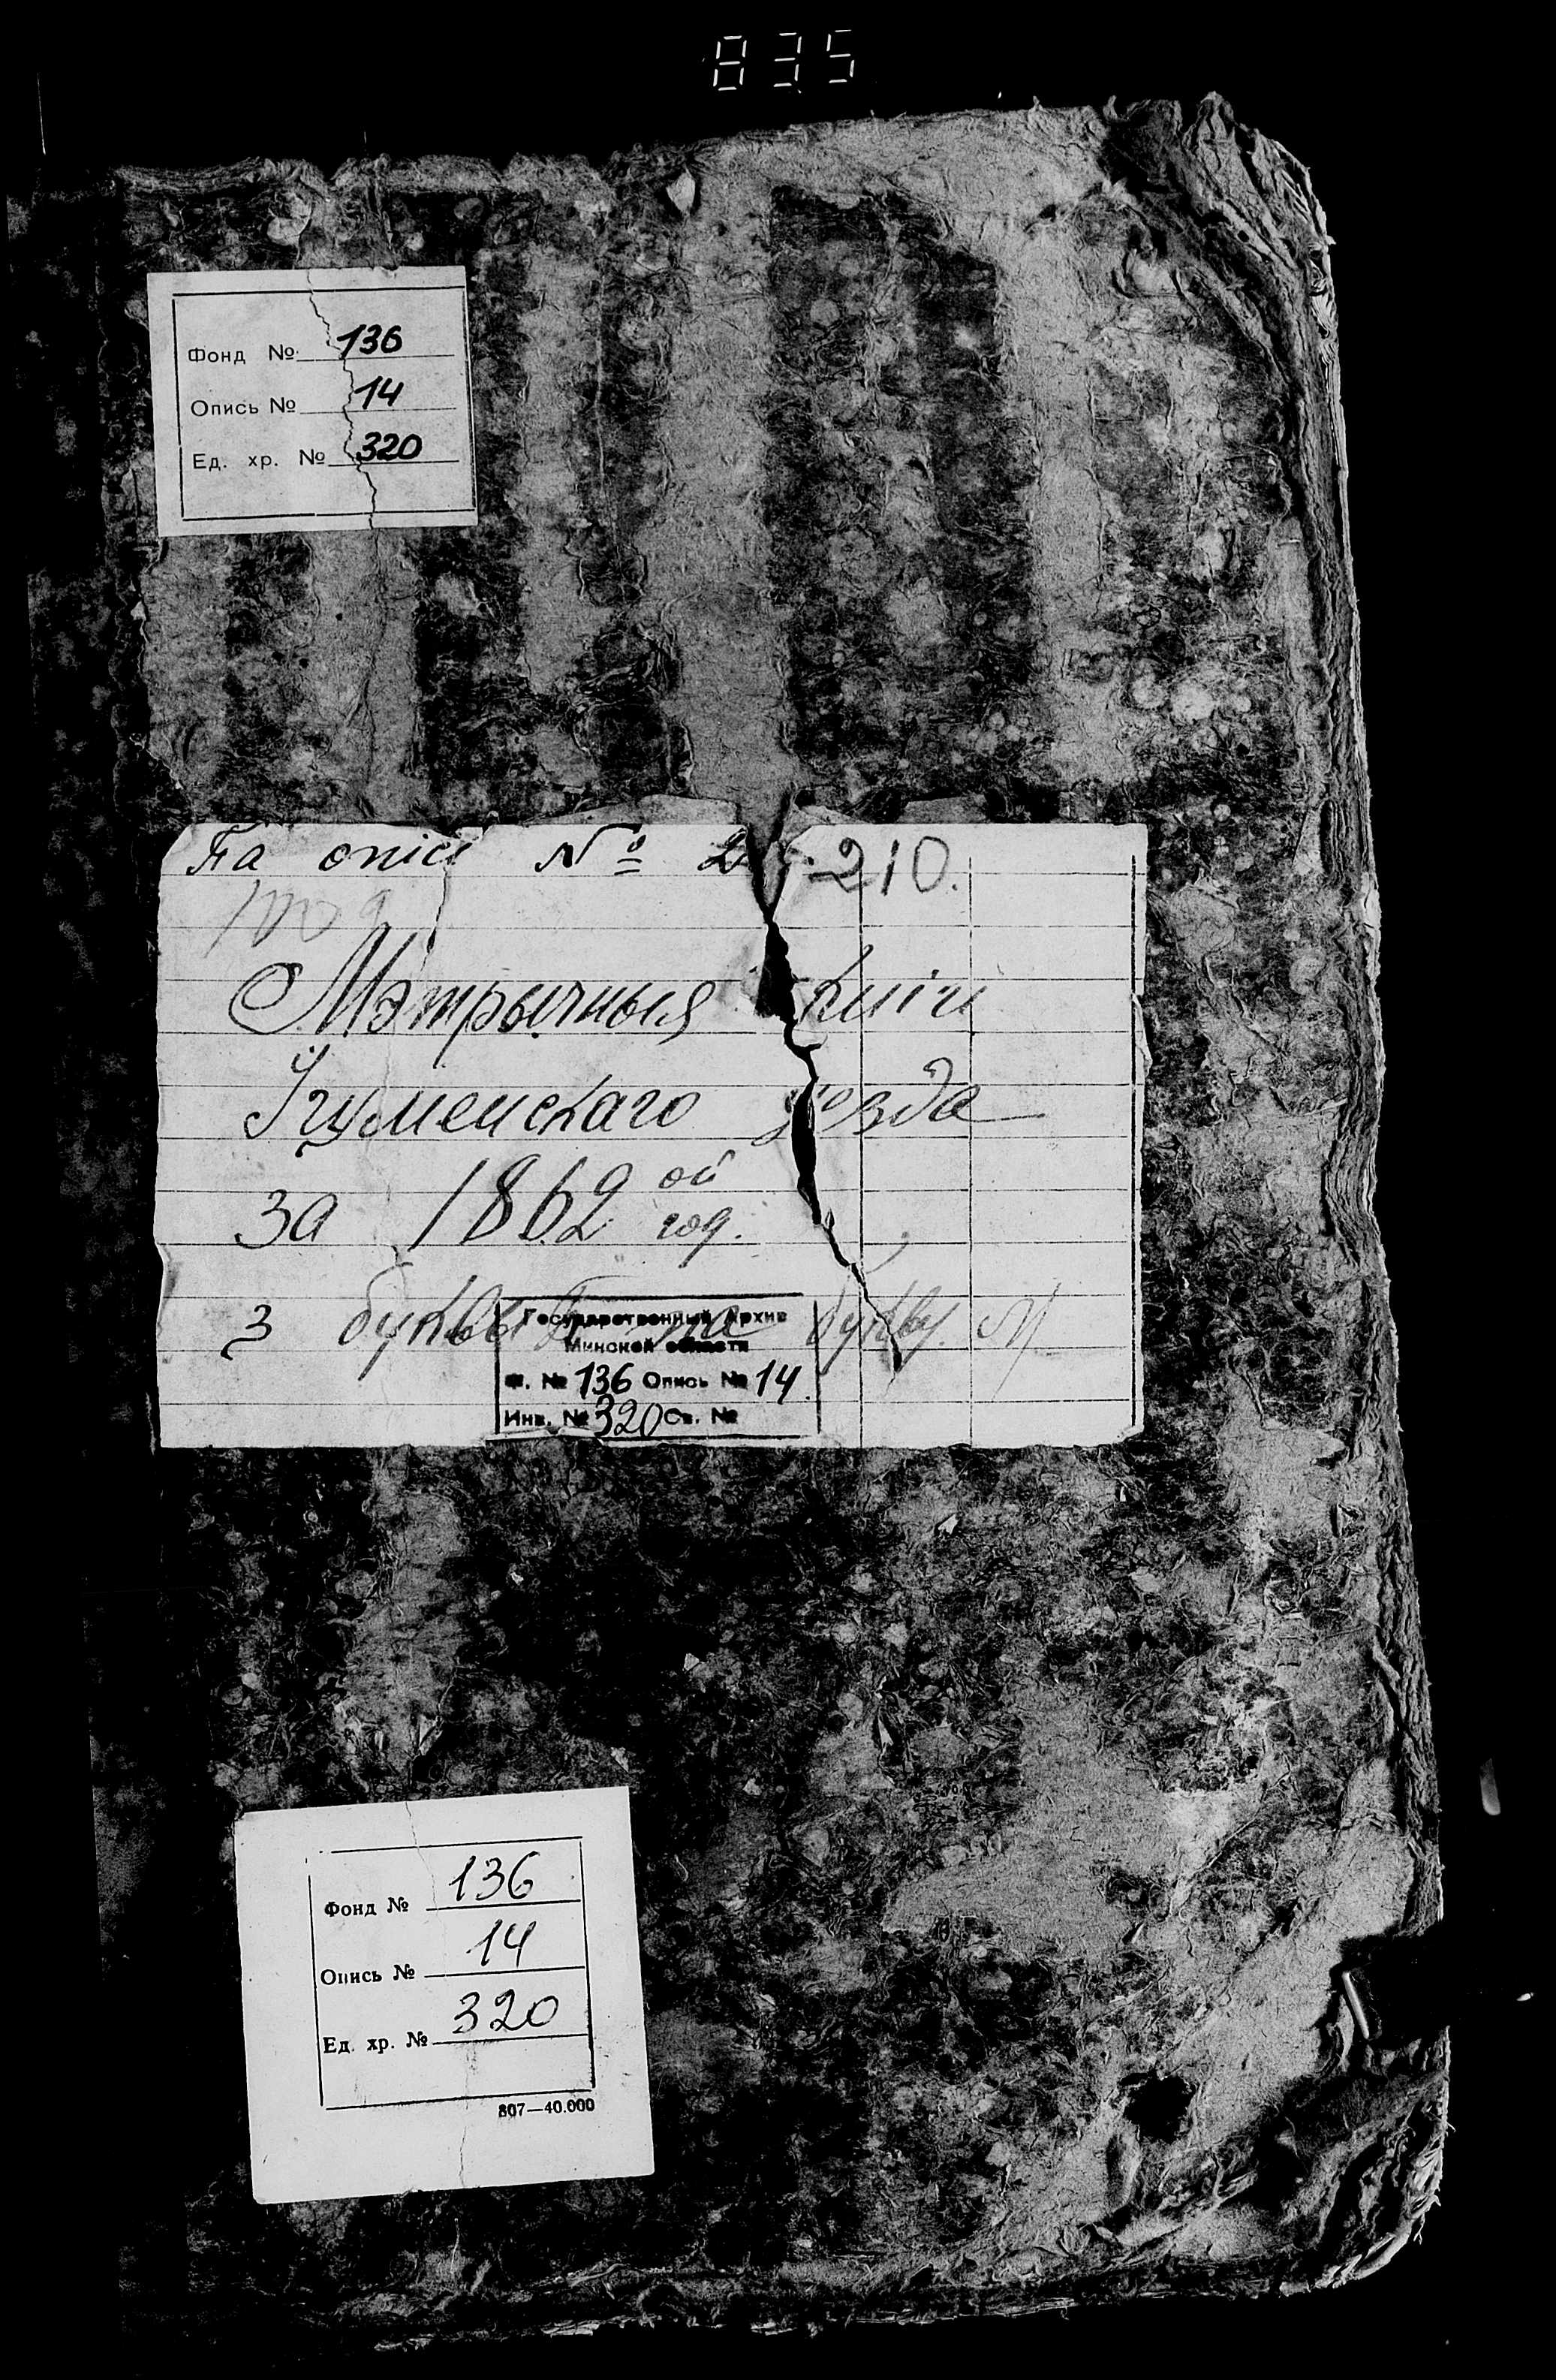 835
Фонд № 136
Опись № 14
Ед. хр. № 320
Па опісі № 210.
Мэтрычныя кнігі
Ігуменскаго уезда
за 1862 ой год.
з буквы на букву М
Государственный Архив
Минской области
Ф. № 136 Опись № 14
Инв. № 320 Св. №
Фонд № 136
Опись № 14
Ед. хр. № 320
807—40.000